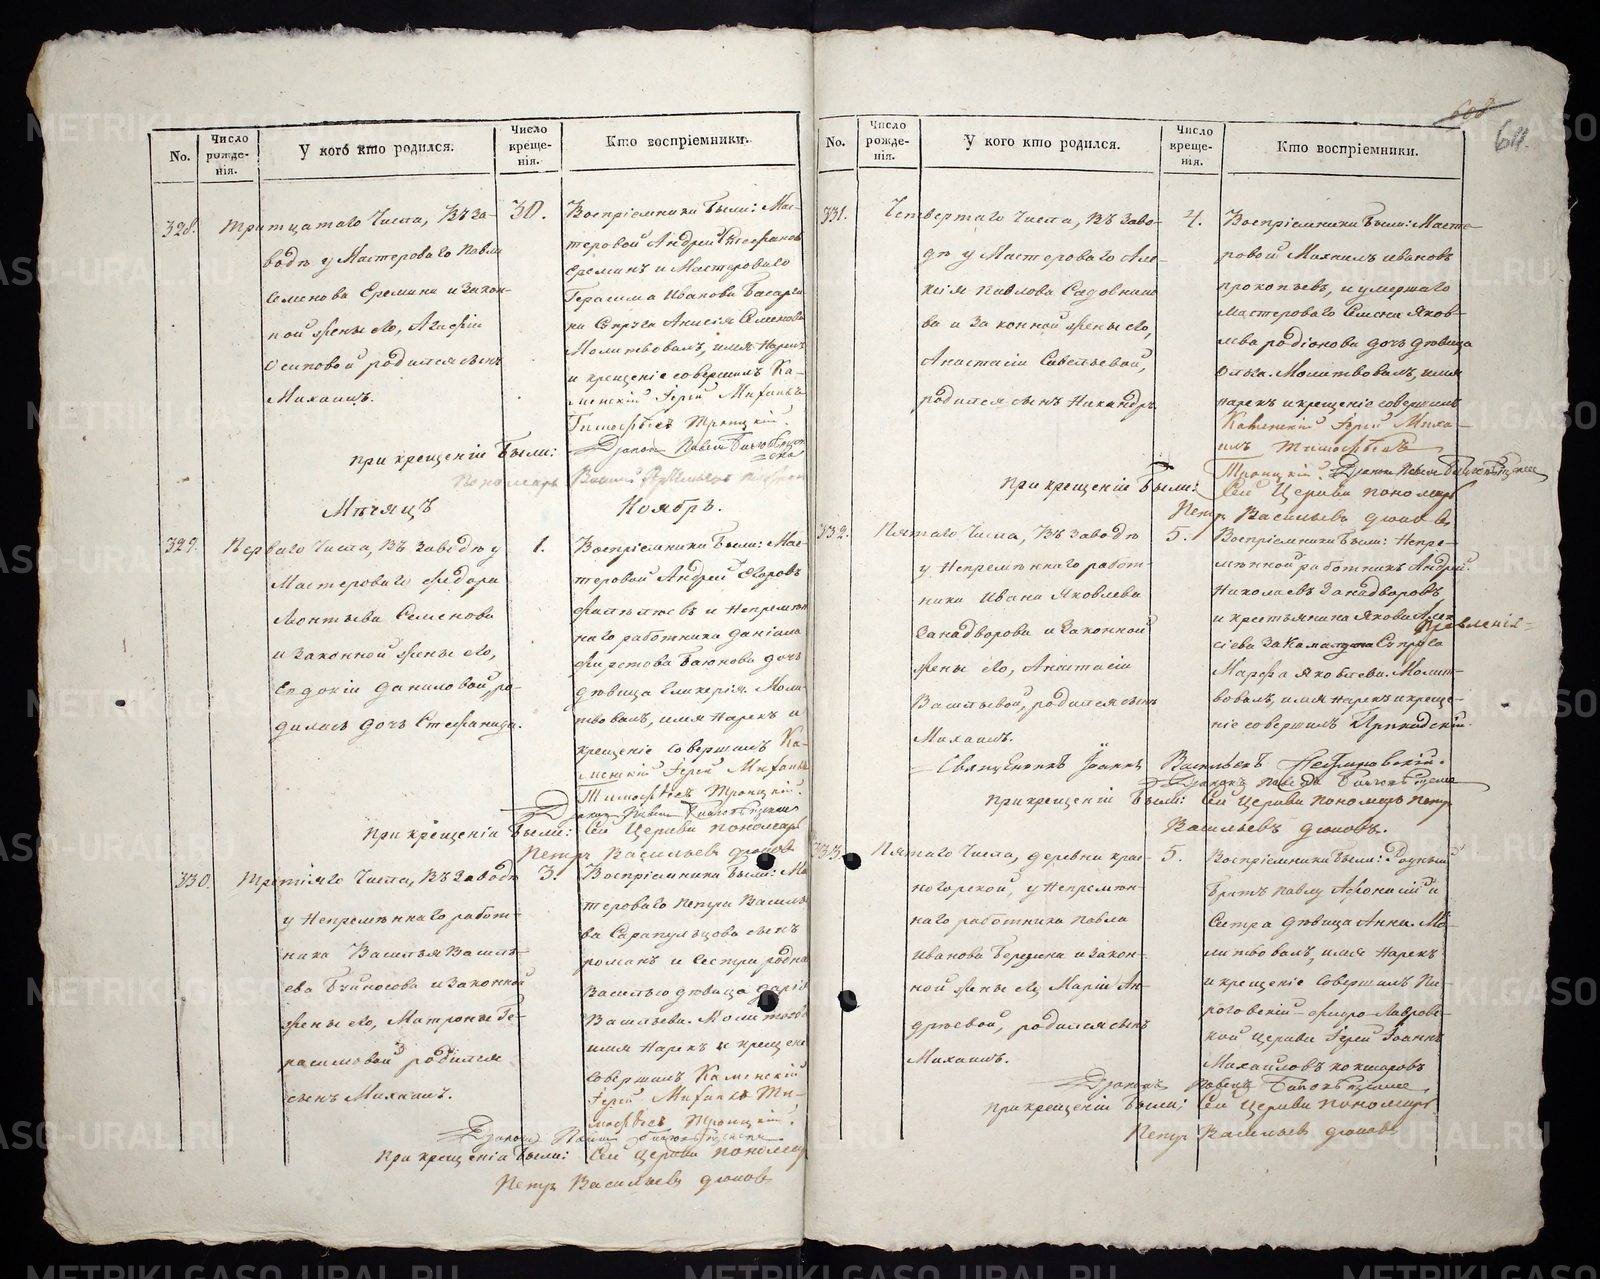 No.
Число рожде-нія.
У кого кто родился.
Число креще-нія.
Кто воспріемники.
328.
Тритцатаго Числа, Въ За-
водѣ у Мастероваго Павла
Семенова Еремина и Закон-
ной жены его, Агафіи
Осиповой родился сынъ
Михаилъ.
30.
Воспріемники были: Мас-
теровой Андрей Стефановъ
Ереминъ и Мастероваго
Герасима Иванова
Супруга Анисія Семенова
Молитвовалъ, имя Нарекъ
и крещеніе совершилъ Ка-
менскій Іерей Михаилъ
Тимофѣевъ Троицкій.
Діаконъ Павелъ
При крещеніи Были:
Пономарь
Мѣсяцъ
Ноябрь.
329.
Перваго Числа, Въ Заводѣ у
Мастероваго Федора
Леонтьева Семенова
и Законной жены его,
Евдокіи Даниловой, ро-
дилась дочь Стефанида.
1.
Воспріемники Были: Мас-
теровой Андрей Егоровъ
и Непремѣн
наго работника Даніила
дочь
дѣвица Гликерія. Моли-
твовалъ, имя Нарекъ и
крещеніе совершилъ Ка-
менскій Іерей Михаилъ
Тимофѣевъ Троицкій.
При крещеніи Были: Сей Церкви пономарь
Петръ Васильевъ
330.
Третіяго Числа, Въ Заводѣ
у Непремѣннаго работ-
ника Василья Василь-
ева и Законной
жены его, Матроны Ге-
расимовой родился
сынъ Михаилъ.
3.
Воспріемники Были: Ма
стероваго Петра Василь
ева Сарапульцова сынъ
романъ и Сестра родна
Василью дѣвица Дарія
Васильева. Молитвовалъ
имя Нарекъ и крещеніе
Совершилъ Каменскій
Іерей Михаилъ Ти-
мофѣевъ Троицкій.
При крещеніи Были: Сей Церкви пономарь
Петръ Васильевъ
608
611.
No.
Число рожде-нія.
У кого кто родился.
Число креще-нія.
Кто воспріемники.
331.
Четвертаго Числа, Въ Заво-
дѣ у Мастероваго Але-
ксія Павлова Садовнико
ва и Законной жены его,
Анастасіи Савельевой,
родился сынъ Никандръ
4.
Воспріемники были: Масте-
ровой Михаилъ Ивановъ
прокопьевъ, и умершаго
мастероваго Семена Яков-
лева родіонова дочь дѣвица
Ольга. Молитвовалъ, имя
нарекъ и крещеніе совершилъ
Каменскій Іерей Миха-
илъ Тимофѣевъ
Троицкій. Діаконъ Павелъ
При крещеніи Были: Сей Церкви пономарь
Петръ Васильевъ
332.
Пятаго Числа, Въ Заводѣ
у Непремѣннаго работ-
ника Ивана Яковлева
Занадворова и Законной
жены его, Анастасіи
Васильевой, родился сынъ
Михаилъ.
5.
Воспріемники Были: Непре-
мѣнной работникъ Андрей
Николаевъ Занадворовъ
и крестьянина Якова Алек
сіева Супруга
Марфа Яковлева. Молит-
вовалъ, имя нарекъ и креще-
ніе совершилъ
Священникъ Іоаннъ Васильевъ
При крещеніи Были: Сей Церкви пономарь Петръ
Васильевъ
333.
Пятаго Числа, деревни крас-
ногорской, у Непремѣн-
наго работника Павла
Иванова и Закон-
ной жены его Маріи Ан-
дреевой, родился сынъ
Михаилъ.
5.
Воспріемники Были: Родный
братъ Павлу Афонасій и
Сестра дѣвица Анна. Мо-
литвовалъ, имя Нарекъ
и крещеніе Совершилъ Пи-
роговскій Флоро-Лаврове-
кой церкви Іерей Іоаннъ
Михаиловъ
Діаконъ Павелъ
При крещеніи Были: Сей Церкви пономарь
Петръ Васильевъ